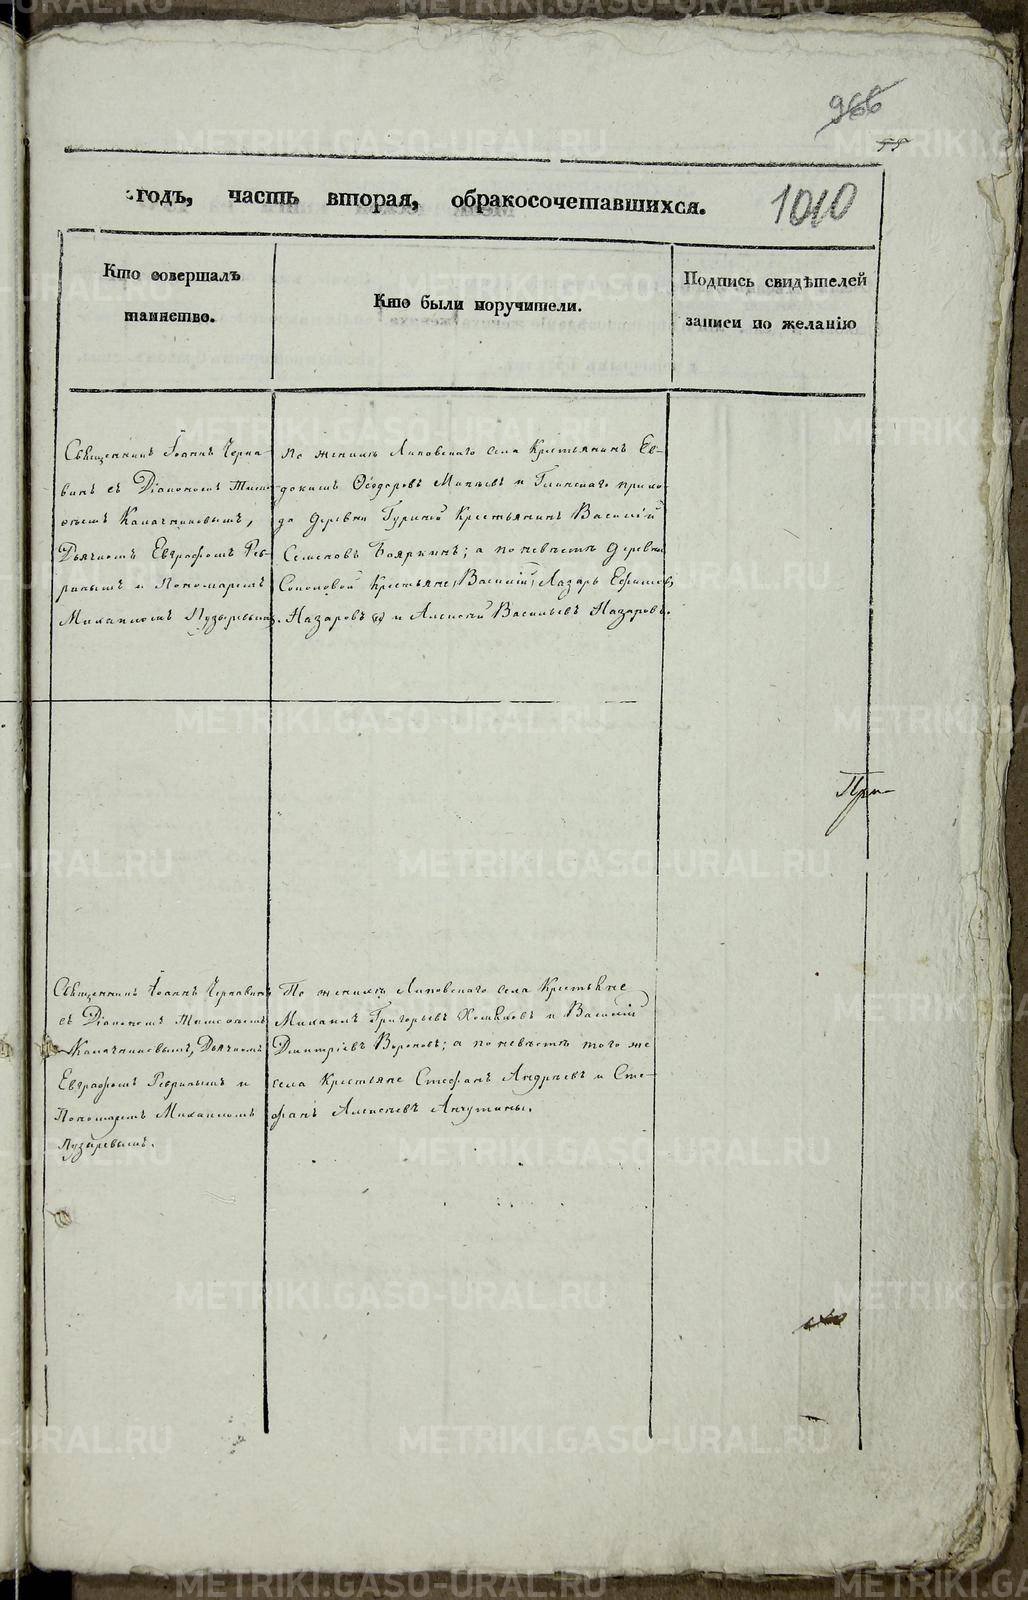 966
1010
годъ, часть вторая, обракосочетавшихся.
Кто совершалъ
таинство.
Кто были поручители.
Подпись свидѣтелей
записи по желанію
Священникъ Іоаннъ Черна-
винъ съ Діакономъ Тимо-
ѳеемъ Калачниковымъ,
Дьячкомъ Евграфомъ
и Пономаремъ
Михаиломъ Пузыревымъ.
По женихѣ Липовскаго села Крестьянинъ Ев-
докимъ Ѳеодоровъ и Глинскаго прихо-
да деревни Гуриной Крестьянинъ Василій
Семеновъ Бояркинъ; а по невѣстѣ деревни
Соколовой Крестьяне (Василій) Лазарь Ефимовъ
Назаровъ и Алексѣй Васильевъ Назаровъ.
При-
Священникъ Іоаннъ Чернавинъ
съ Діакономъ Тимоѳеемъ
Калачниковымъ, Дьячкомъ
Евграфомъ и
Пономаремъ Михаиломъ
Пузыревымъ.
По женихѣ Липовскаго села Крестьяне
Михаилъ Григорьевъ Хомяковъ и Василій
Дмитріевъ Вороновъ; а по невѣстѣ того же
села Крестьяне Стефанъ Андреевъ и Сте-
фанъ Алексѣевъ Анчутины.
METRIKI.GASO-URAL.RU